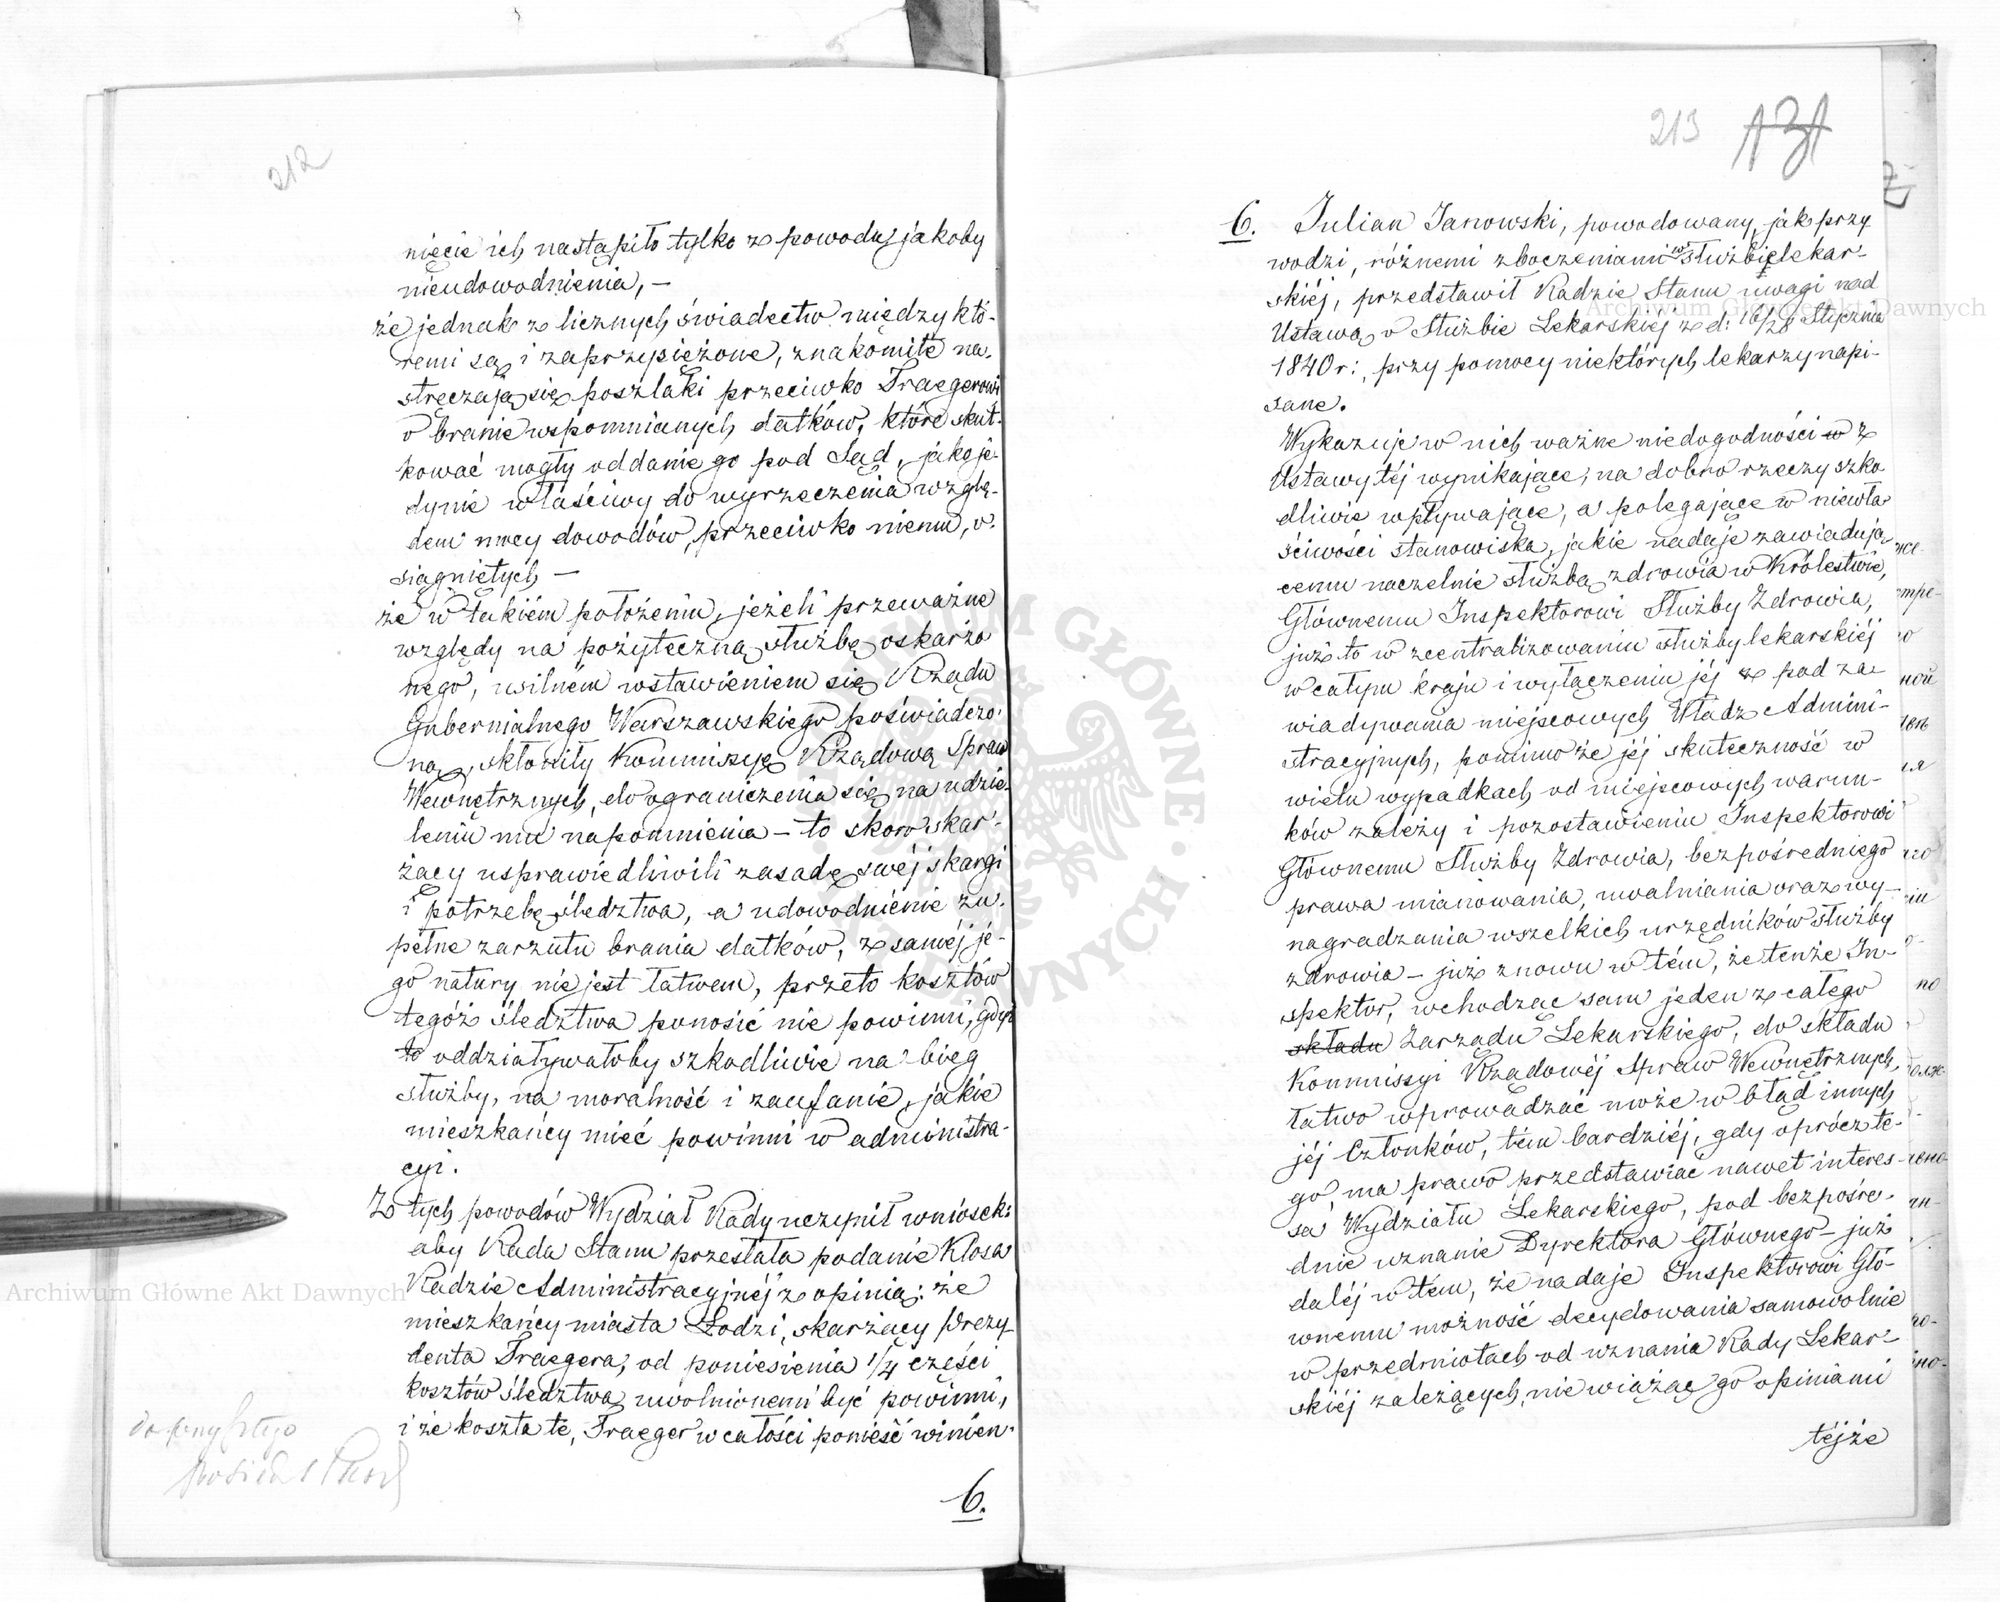 212
nięcie ich nastąpiło tylko z powodu jakoby
nieudowodnienia, —
że jednak z licznych świadectw między któ-
remi są i zaprzysiężone, znakomite na-
stręczają się poszlaki przeciwko Traegerowi
o branie wspomnianych datków, które skut-
kować mogły oddanie go pod Sąd, jako je-
dynie właściwy do wyrzeczenia wzglę-
dem mocy dowodów, przeciwko niemu, o-
siągniętych —
że w takiém położeniu, jeżeli przeważne
względy na pożyteczną służbę oskarżo
nego, usilném wstawieniem się Rządu
Gubernialnego Warszawskiego poświadczo-
ną, skłoniły Kommissyę Rządową Spraw
Wewnętrznych, do ograniczenia się na udzie-
leniu mu napomnienia — to skoro skar-
żący usprawiedliwili zasadę swéj skargi
i potrzebę śledztwa, a udowodnienie zu-
pełne zarzutu brania datków, z saméj je-
go natury nie jest łatwem, przeto kosztów
tegóż śledztwa ponosić nie powinni, gdyż
to oddziaływałoby szkodliwie na bieg
służby, na moralność i zaufanie, jakie
mieszkańcy mieć powinni w administra-
cyi.
Z tych powodów Wydział Rady uczynił wniosek:
aby Rada Stanu przesłała podanie Klosa
Radzie Administracyjnéj z opinią: że
mieszkańcy miasta Łodzi, skarżący Prezy-
denta Traegera, od poniesienia 1/4 części
kosztów śledztwa uwolnionemi być powinni,
i że koszta te, Traeger w całości ponieść winien.
6.
213
131
6. Julian Janowski, powodowany, jak przy
wodzi, różnemi zboczeniami w służbie lekar-
skiéj, przedstawił Radzie Stanu uwagi nad
Ustawą o Służbie Lekarskiéj z d: 16/28 Stycznia
1840 r:, przy pomocy niektórych lekarzy napi-
sane.
Wykazuje w nich ważne niedogodności w z
Ustawy téj wynikające, na dobro rzeczy szko
dliwie wpływające, a polegające w niewła-
ściwości stanowiska, jakie nadaje zawiadują-
cemu naczelnie służbą zdrowia w Królestwie,
Głównemu Inspektorowi Służby Zdrowia,
już to w zcentralizowaniu służby lekarskiéj
w całym kraju i wyłączeniu jéj z pod za-
wiadywania miejscowych Władz Admini-
stracyjnych, pomimo że jéj skuteczność w
wielu wypadkach od miejscowych warun-
ków zależy i pozostawieniu Inspektorowi
Głównemu Służby Zdrowia, bezpośredniego
prawa mianowania, uwalniania oraz wy-
nagradzania wszelkich urzędników służby
zdrowia — już znowu w tém, że tenże In-
spektor, wchodząc sam jeden z całego
składu Zarządu Lekarskiego, do składu
Kommissyi Rządowéj Spraw Wewnętrznych,
łatwo wprowadzać może w błąd innych
jéj Członków, tém bardziéj, gdy oprócz te-
go, ma prawo przedstawiać nawet interes-
sa Wydziału Lekarskiego, pod bezpośre-
dnie uznanie Dyrektora Głównego — już
daléj w tem, że nadaje Inspektorowi Głó-
wnemu możność decydowania samowolnie
w przedmiotach od uznania Rady Lekar-
skiéj zależących, nie wiążąc go opiniami
téjże
Archiwum Główne Akt Dawnych
Archiwum Główne Akt Dawnych